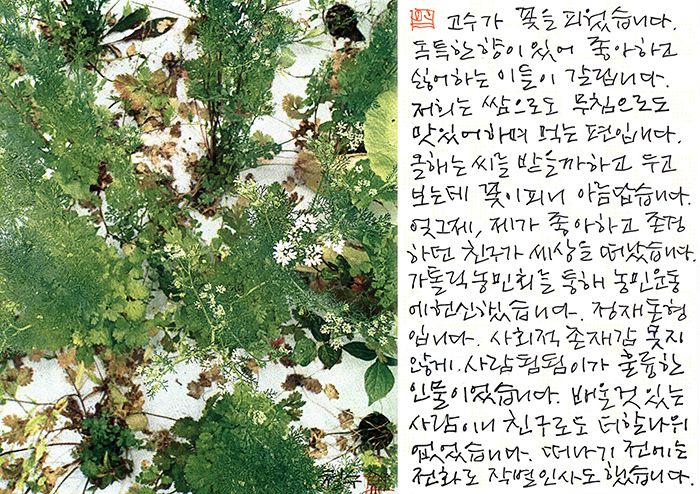 고수가 꽃을 피웠습니다.
독특한 향이 있어 좋아하고
싫어하는 이들이 갈립니다.
저희는 쌈으로도 무침으로도
맛있어하며 먹는 편입니다.
올해는 씨를 받을까하고 두고
보는데 꽃이 피니 아름답습니다.
엊그제, 제가 좋아하고 존경
하던 친구가 세상을 떠났습니다.
가톨릭농민회를 통해 농민운동
에 헌신했습니다. 정재돈형
입니다. 사회적 존재감 못지
않게 사람 됨됨이가 훌륭한
인물이었습니다. 배울것 있는
사람이니 친구로도 더할나위
없었습니다. 떠나기 전에는
전화로 작별인사도 했습니다.